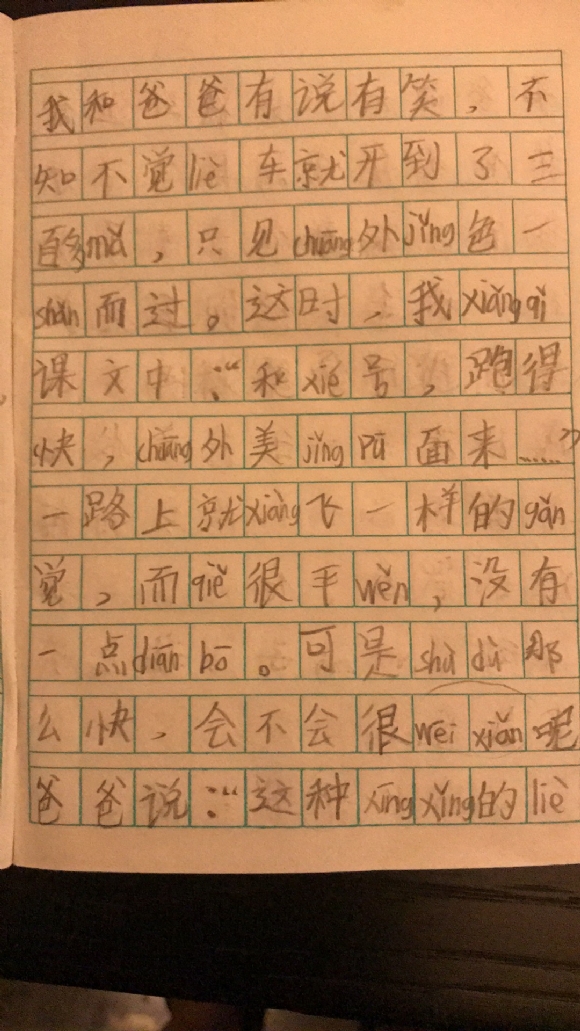 我和爸爸有说有笑，不
知不觉liè车就开到了三
百多mǎ，只见chuāng外jǐng色一
shǎn而过。这时，我xiǎng qǐ
课文中：“和xié号，跑得
快，chuāng外美jǐng pū面来……”
一路上就xiàng飞一样的gǎn
觉，而qiě很平wěn，没有
一点diān bō。可是shù dù那
么快，会不会很wēi xiǎn呢
爸爸说：“这种xīng xíng的liè